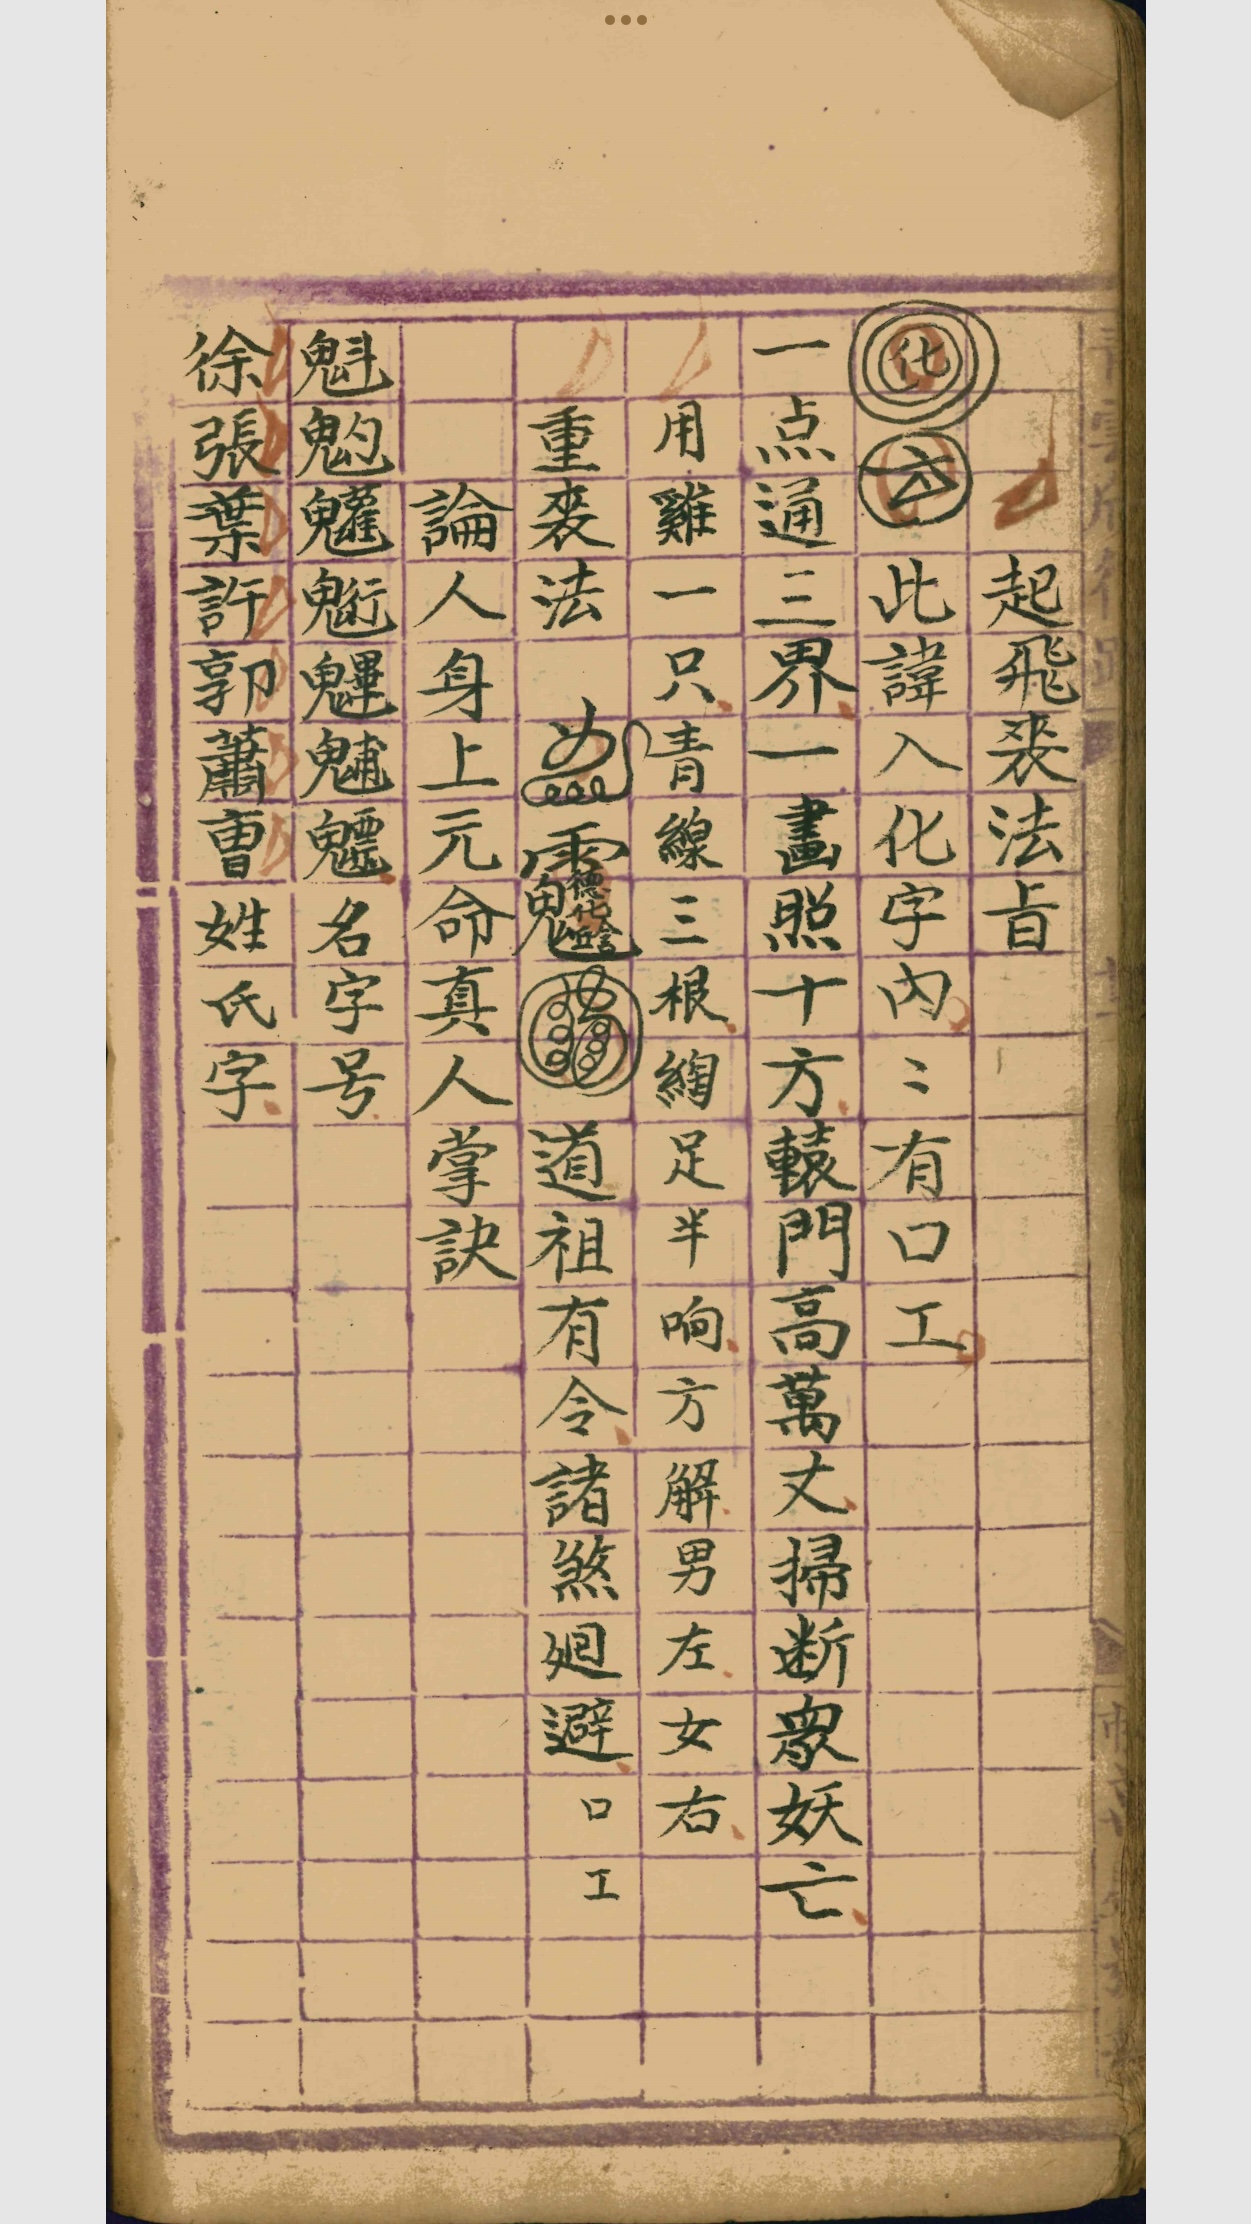 起飛裟法旨
化 此諱入化字內〻有口工
一点通三界一畫照十方轅門高萬丈掃断衆妖亡
用雞一只青線三根綯足半响方解男左女右
重裟法 道祖有令諸煞廻避口工
論人身上元命真人掌訣
魁䰢魓名字号
徐張葉許郭蕭曹姓氏字